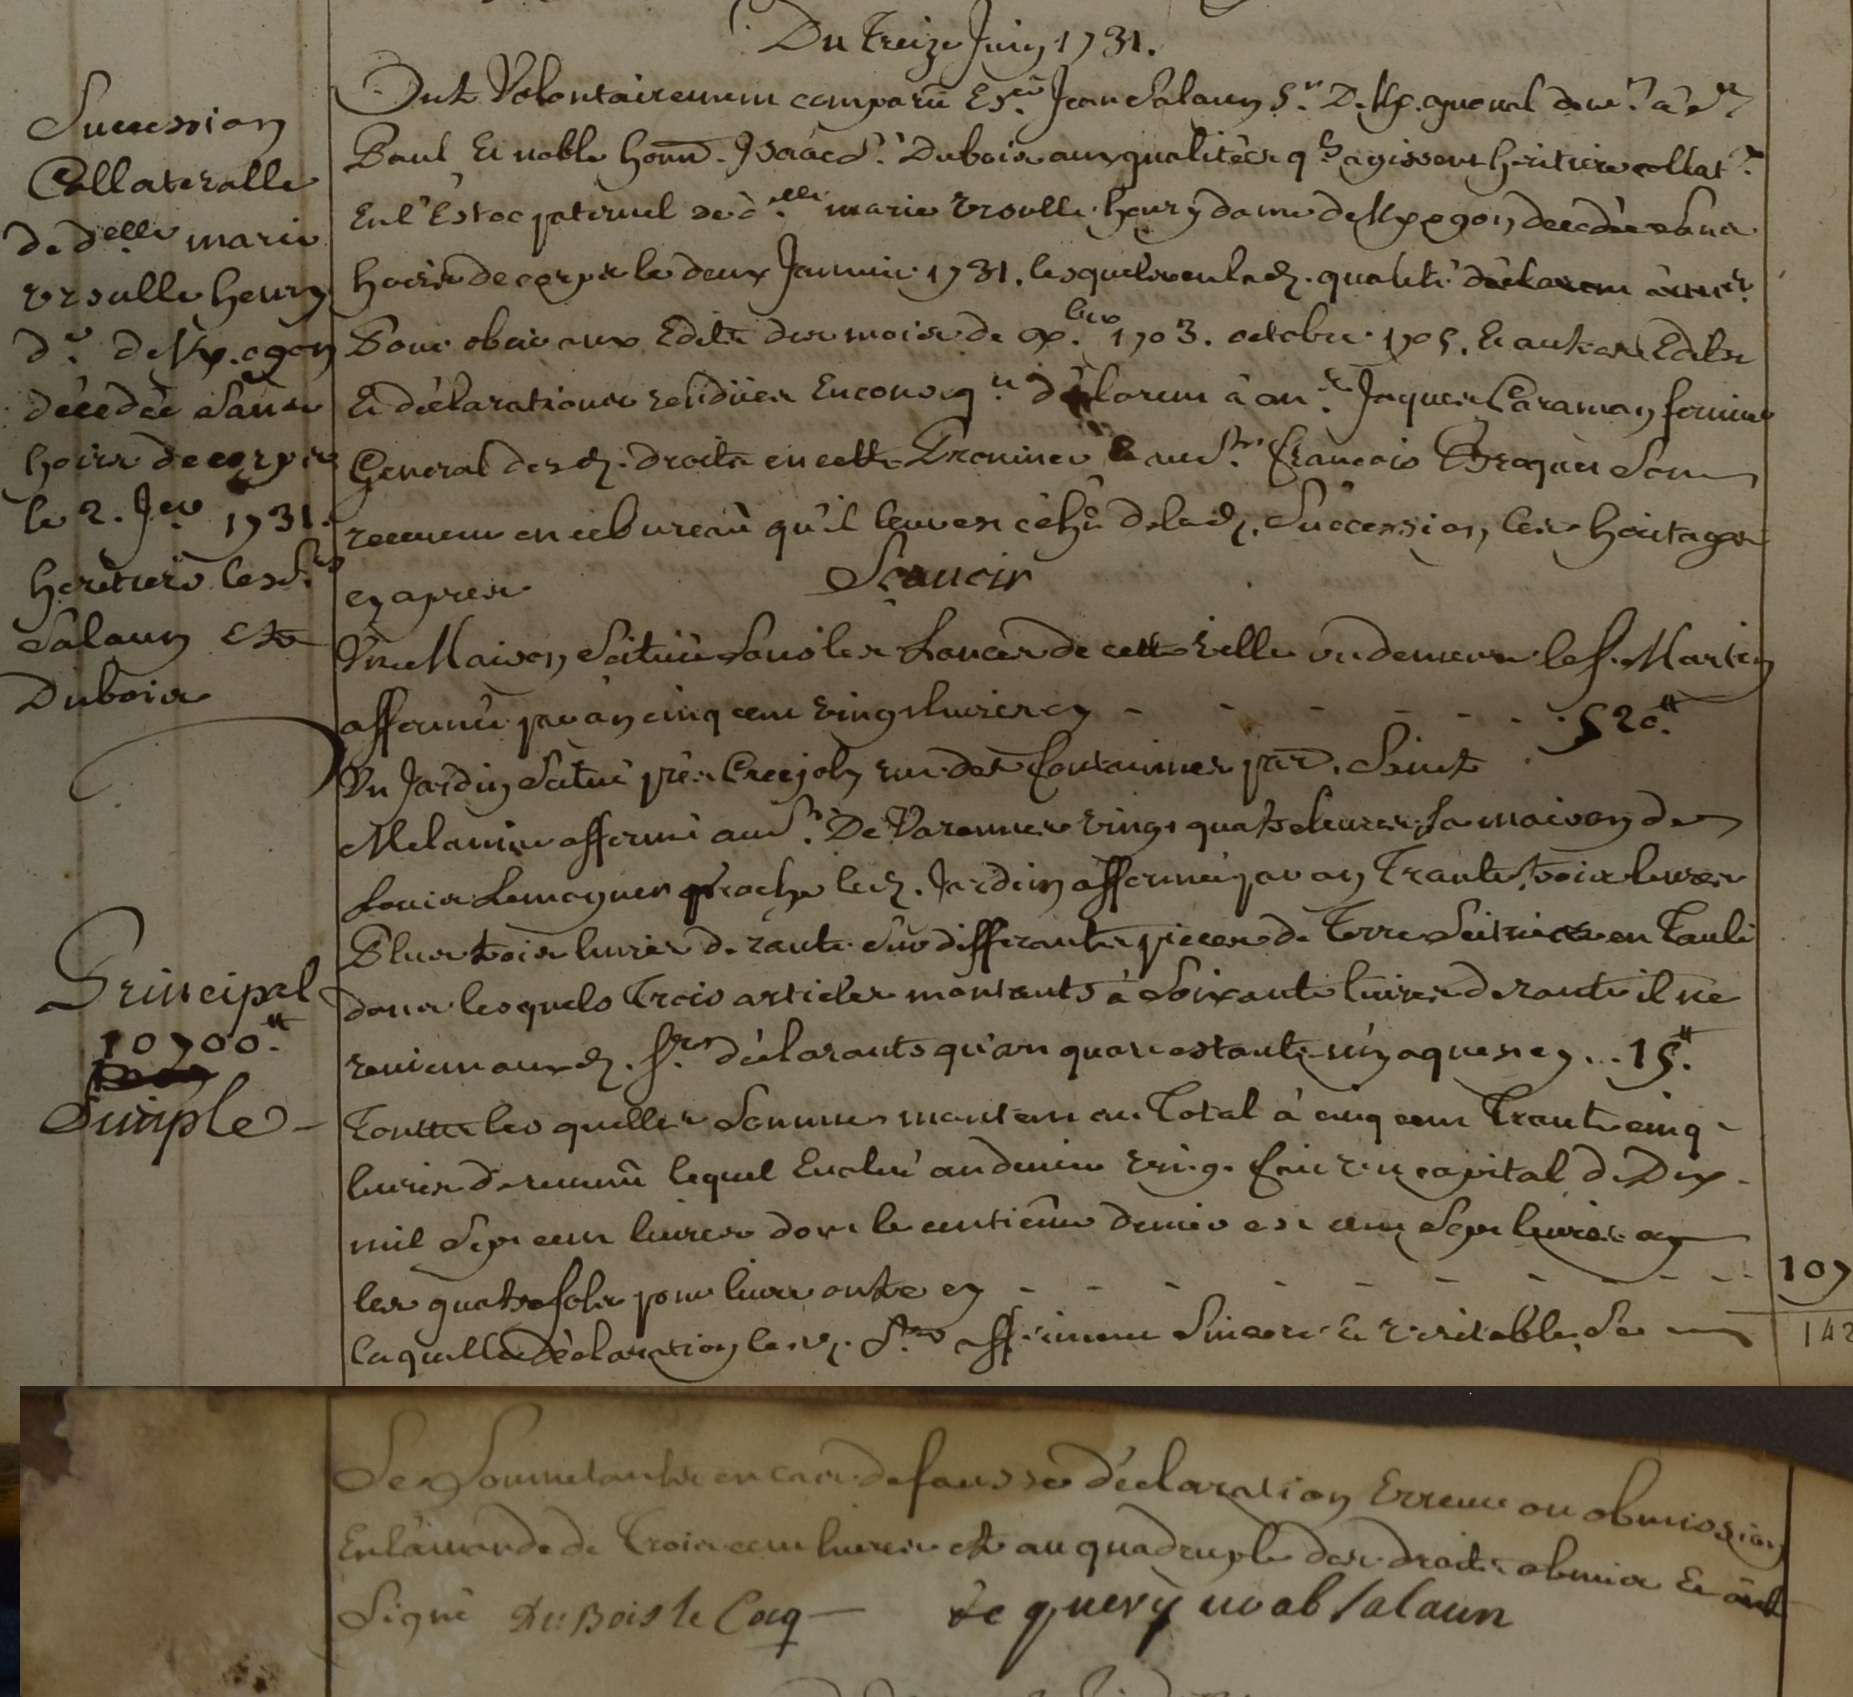 Du treize Juin 1731.
Succession
Collateralle
de d.elle marie
Ursulle henry
d.e de Kp.egon
décédée sans
hoirs de corps
le 2. Jer 1731.
heritiers les Srs
Salaun et
Dubois
Principal
10700.tt
Simple
Ont Volontairement comparu Jean Salaun Sr. De
Paul Et noble hom. Isaac Sr. Dubois aux qualités qls agissent heritiers collat.
En l'Estoc paternel de d.elle marie Ursulle henry dame de décédée sans
hoirs de corps le deux Janvier 1731. lesquels en lad. qualité
Pour obeir aux Edits des mois de bre 1703. octobre 1705. Et autres Edits
Et déclarations rendües En conseq.ce déclarent à Jaques Caraman fermier
General desd. droits en cette Province & au Sr. François Broquer son
receveur en ce bureau qu'il leur est échû de lad. Succession, les heritages
cy apres
Scavoir
Une Maison Scituée sous les Lances de cette ville où demeure le S. Martin
affermée par an cinq cent vingt livres cy - - - - - 520.tt
Un Jardin Scitué près Creejoly rue des fontaines par. Saint
Melaine affermé au Sr. De Varennes vingt quatre livres, la maison de
Louis proche led. Jardin affermée par an Trante trois livres
Plus trois livres de rante sur differantes pieces de Terre Scituées en Taulé
dans lesquels Trois articles montants à Soixante livres de rante il ne
revient auxd. Srs déclarants qu'un quart cy... 15.tt
Toutes les quelles Sommes montent au Total à cinq cent Trante cinq
livres de revenu lequel Evalué au denier vingt fait un capital de Dix
mil Sept cent livres dont le centiéme denier est cent Sept livres cy
107
les quatre sols pour livre outre cy - - - - -
142
laquelle Déclaration lesd. Srs affirment Sincere Et veritable, Se
Se Soumetants en cas de fausse déclaration Erreur ou obmission
En l'amande de Trois cent livres et au quadruple des droits obmis Et ont
Signé Du Bois le Coq - de salaun